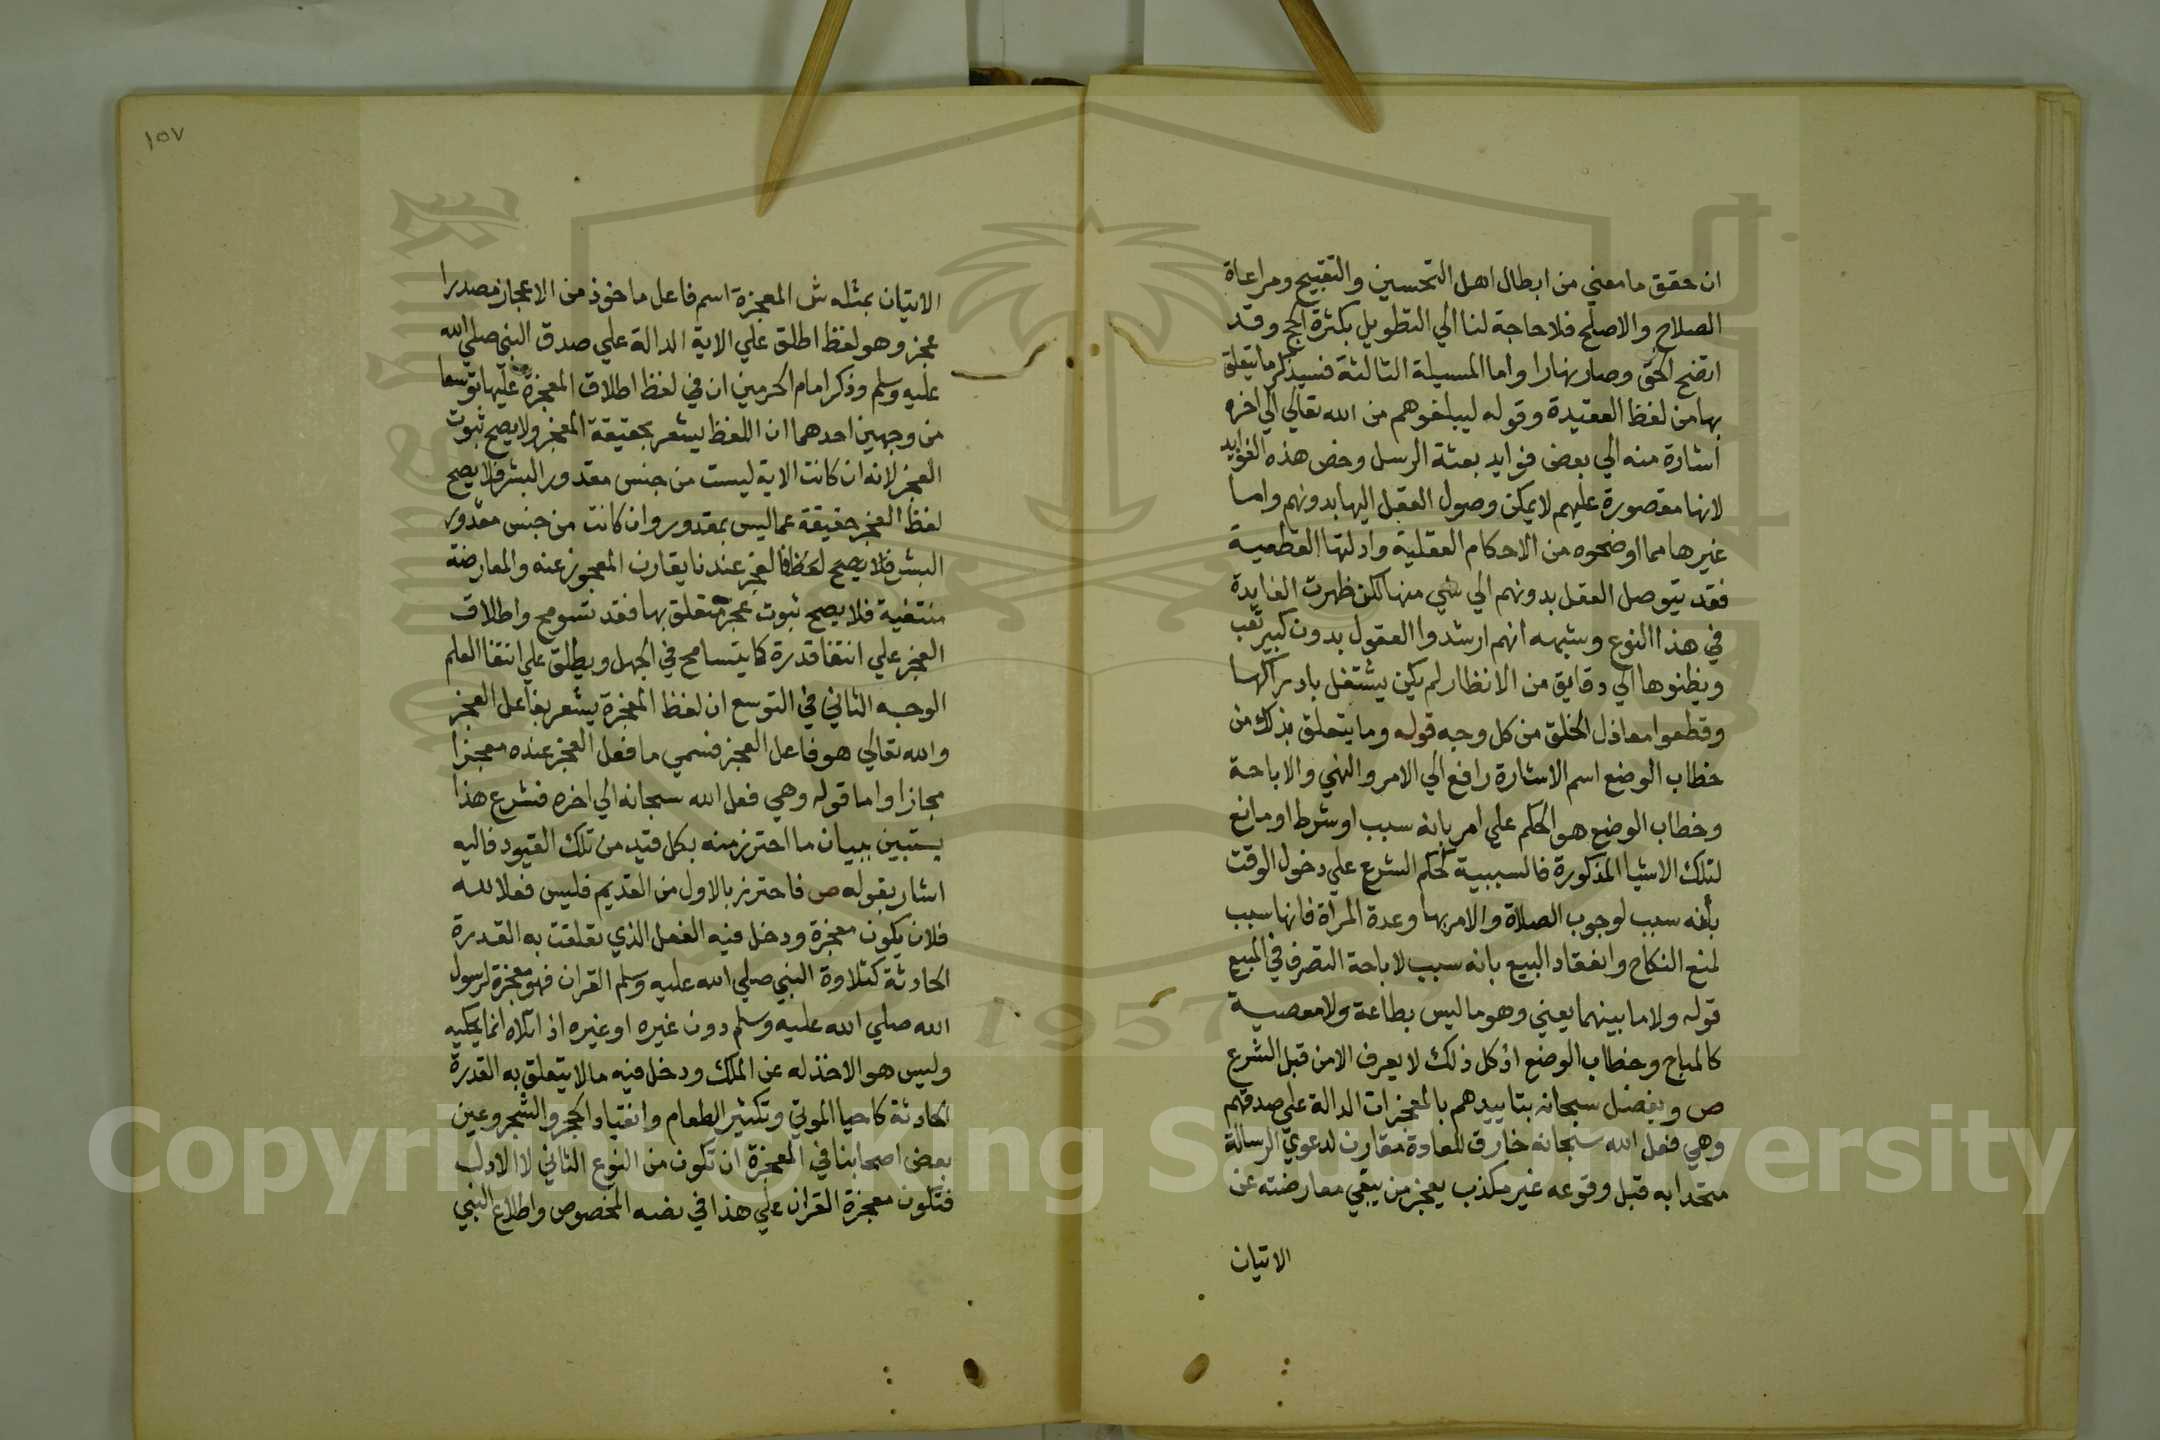 ان حقق ما معني من ابطال اهل التحسين والتقبيح ومراعاة
الصلاح والاصلح فلا حاجة لنا الي التطويل بكثرة الحج وقد
اتضح الحق وصار نهارا واما المسيلة الثالثة فسيذكر ما يتعلق
بها من لفظ العقيدة وقوله ليبلغوهم من الله تعالي الي اخره
اشارة منه الي بعض فوايد بعثة الرسل وخص هذه الفوايد
لانها مقصورة عليهم لا يمكن وصول العقل اليها بدونهم واما
غيرها مما اوضحوه من الاحكام العقلية وادلتها القطعية
فقد يتوصل العقل بدونهم الي شي منها لكن ظهرت الفايدة
في هذا النوع وشبهه انهم ارشدوا العقول بدون كبير تعب
ويظنوها الي دقايق من الانظار لم يكن يشتغل بادراكها
وقطعوا معاذل الخلق من كل وجه قوله وما يتعلق بذلك من
خطاب الوضع اسم الاشارة رافع الي الامر والنهي والاباحة
وخطاب الوضع هو الحكم علي امر بانه سبب او شرط او مانع
لتلك الاشيا المذكورة فالسببية كحكم الشرع علي دخول الوقت
بأنه سبب لوجوب الصلاة والامر بها وعدة المرأة فانها سبب
لمنع النكاح وانعقاد البيع بانه سبب لاباحة التصرف في المبيع
قوله ولا ما بينهما يعني وهو ما ليس بطاعة ولا معصية
كالمباح وخطاب الوضع اذ كل ذلك لا يعرف الا من قبل الشرع
ص ويفضل سبحانه بتاييدهم بالمعجزات الدالة علي صدقهم
وهي فعل الله سبحانه خارق للعادة مقارن لدعوي الرسالة
متحدا به قبل وقوعه غير مكذب يعجز من يبقي معارضته عن
الاتيان
١٥٧
الاتيان بمثله ش المعجزة اسم فاعل ماخوذ من الاعجاز مصدرا
عجز وهو لفظ اطلق علي الاية الدالة علي صدق النبي صلي الله
عليه وسلم وذكر امام الحرمين ان في لفظ اطلاق المعجزة عليها توسعا
من وجهين احدهما ان اللفظ يشعر بحقيقة المعجز ولا يصح ثبوت
العجز لانه ان كانت الاية ليست من جنس مقدور البشر فلا يصح
لفظ العجز حقيقة عما ليس بمقدور وان كانت من جنس مقدور
البشر فلا يصح لحظ فالعجز عندنا يقارن المعجوز عنه والمعارضة
منتفية فلا يصح ثبوت عجز متعلق بها فقد تسومح واطلاق
العجز علي انتفا قدرة كما يتسامح في الجهل ويطلق علي انتفا العلم
الوجه الثاني في التوسع ان لفظ المعجزة يشعر بفاعل العجز
والله تعالي هو فاعل العجز فسمي ما فعل العجز عنده معجزا
مجازا واما قوله وهي فعل الله سبحانه الي اخره فشرع هذا
يستبين ببيان ما احترز منه بكل قيد من تلك القيود فاليه
اشار بقوله ص فاحترز بالاول من القديم فليس فعلا لله
فلان يكون معجزة ودخل فيه الفعل الذي تعلقت به القدرة
الحادثة كتلاوة النبي صلي الله عليه وسلم القران فهو معجزة لرسول
الله صلي الله عليه وسلم دون غيره او غيره اذا تلاه انما يحكيه
وليس هو الاخذ له عن الملك ودخل فيه ما لا يتعلق به القدرة
الحادثة كاحيا الموتي وتكثير الطعام وانقياد الحجر والشجر وعين
بعض اصحابنا في المعجزة ان تكون من النوع الثاني لا الاول
فتكون معجزة القران علي هذا في نصه المخصوص واطلاع النبي
1957
Copyright © King Saud University